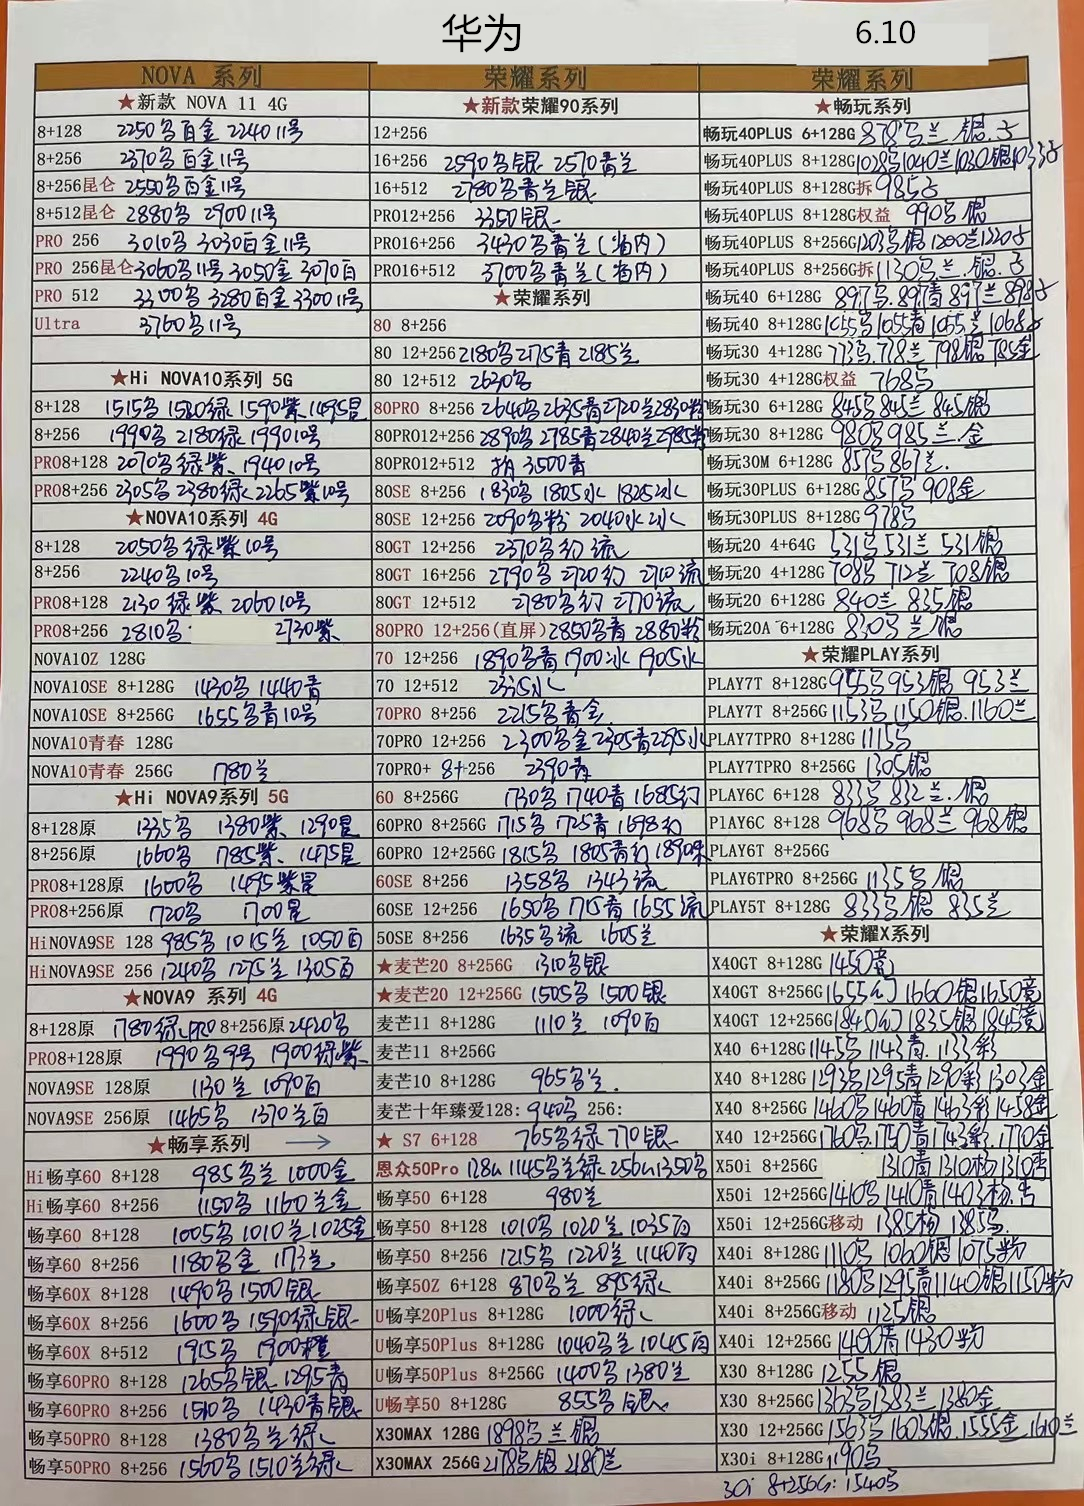 华为
6.10
NOVA 系列
★新款 NOVA 11 4G
8+128 2250乌百金 2240 11号
8+256 2370乌百金11号
8+256昆仑 2550乌百金11号
8+512昆仑 2880乌 2900 11号
PRO 256 3010乌 3030百金11号
PRO 256昆仑 3060乌11号 3050金 3070百
PRO 512 3300乌 3280百金 3300 11号
Ultra 3760乌11号
★Hi NOVA10系列 5G
8+128 1515乌 1520绿 1590紫 1495星
8+256 1990乌 2180绿 1990 10号
PRO8+128 2070乌绿紫、1940 10号
PRO8+256 2305乌 2380绿 2265紫10号
★NOVA10系列 4G
8+128 2050乌绿紫10号
8+256 2240乌10号
PRO8+128 2130 绿紫 2060 10号
PRO8+256 2810乌 2730紫
NOVA10Z 128G
NOVA10SE 8+128G 1430乌 1440青
NOVA10SE 8+256G 1655乌青10号
NOVA10青春 128G
NOVA10青春 256G 1780兰
★Hi NOVA9系列 5G
8+128原 1335乌 1380紫、1290星
8+256原 1660乌 1785紫、1475星
PRO8+128原 1600乌 1495紫星
PRO8+256原 1720乌 1700星
HiNOVA9SE 128 985乌 1015兰 1050百
HiNOVA9SE 256 1240乌 1275兰 1305百
★NOVA9 系列 4G
8+128原 1780绿 PRO 8+256原 2420乌
PRO8+128原 1990乌9号 1900绿紫
NOVA9SE 128原 1130兰 1090百
NOVA9SE 256原 1465乌 1370兰百
★畅享系列 →
Hi畅享60 8+128 985乌兰 1000金
Hi畅享60 8+256 1150乌 1160兰金
畅享60 8+128 1005乌 1010兰 1025金
畅享60 8+256 1180乌金 1173兰
畅享60X 8+128 1490乌 1500银
畅享60X 8+256 1600乌 1590绿银
畅享60X 8+512 1915乌 1900橙
畅享60PRO 8+128 1265乌银 1295青
畅享60PRO 8+256 1510乌 1430青银
畅享50PRO 8+128 1380乌兰绿
畅享50PRO 8+256 1560乌 1510兰绿
荣耀系列
★新款荣耀90系列
12+256
16+256 2590乌银 2570青兰
16+512 2780乌青兰银
PRO12+256 3350银
PRO16+256 3430乌青兰(省内)
PRO16+512 3700乌青兰(省内)
★荣耀系列
80 8+256
80 12+256 2180乌 2175青 2185兰
80 12+512 2630乌
80PRO 8+256 2640乌 2635青 2720兰 2830粉
80PRO12+256 2890乌 2785青 2840兰 2985粉
80PRO12+512 3500青
80SE 8+256 1830乌 1805水 1825冰
80SE 12+256 2090乌粉 2040水冰
80GT 12+256 2370乌幻 流
80GT 16+256 2790乌 2720幻 2710流
80GT 12+512 2780乌幻 2770流
80PRO 12+256(直屏) 2850乌青 2880粉
70 12+256 1890乌青 1900冰 1905水
70 12+512 2335水
70PRO 8+256 2215乌青金
70PRO 12+256 2300乌金 2305青 2295水
70PRO+ 8+256 2390青
60 8+256G 1730乌 1740青 1685幻
60PRO 8+256G 1715乌 1725青 1698幻
60PRO 12+256G 1815乌 1805青幻 1890
60SE 8+256 1358乌 1343流
60SE 12+256 1650乌 1715青 1655流
50SE 8+256 1635乌流 1605兰
★麦芒20 8+256G 1310乌银
★麦芒20 12+256G 1505乌 1500银
麦芒11 8+128G 1110兰 1090百
麦芒11 8+256G
麦芒10 8+128G 965乌兰.
麦芒十年臻爱128: 940乌 256:
★ S7 6+128 765乌绿 770银
恩众50Pro 128G 1145乌兰绿 256G 1350乌
畅享50 6+128 980兰
畅享50 8+128 1010乌 1020兰 1035百
畅享50 8+256 1215乌 1220兰 1140百
畅享50Z 6+128 870乌兰 895绿
U畅享20Plus 8+128G 1000绿
U畅享50Plus 8+128G 1040乌兰 1045百
U畅享50Plus 8+256G 1400乌 1380兰
U畅享50 8+128G 855乌银
X30MAX 128G 1898乌兰银
X30MAX 256G 2178乌银 2180兰
荣耀系列
★畅玩系列
畅玩40PLUS 6+128G 878乌兰.银.子
畅玩40PLUS 8+128G 1028乌 1040兰 1030银 1033子
畅玩40PLUS 8+128G拆 985子
畅玩40PLUS 8+128G权益 990乌银
畅玩40PLUS 8+256G 1203乌银 1200兰 1220子
畅玩40PLUS 8+256G拆 1130乌兰.银.子
畅玩40 6+128G 897乌.897青 897兰 898子
畅玩40 8+128G 1055乌 1055青 1055兰 1068子
畅玩30 4+128G 773乌.778兰 798银 785金
畅玩30 4+128G权益 768乌
畅玩30 6+128G 845乌 845兰 845银
畅玩30 8+128G 980乌 985兰.金
畅玩30M 6+128G 857乌 867兰.
畅玩30PLUS 6+128G 857乌 908金
畅玩30PLUS 8+128G 978乌
畅玩20 4+64G 531乌 531兰 531银
畅玩20 4+128G 708乌 712兰 708银
畅玩20 6+128G 840兰 835银
畅玩20A 6+128G 830乌兰银
★荣耀PLAY系列
PLAY7T 8+128G 955乌 953银 953兰
PLAY7T 8+256G 1153乌 1150银.1160兰
PLAY7TPRO 8+128G 1115乌
PLAY7TPRO 8+256G 1305银
PLAY6C 6+128 833乌 832兰.银
PlAY6C 8+128 968乌 968兰 968银
PLAY6T 8+256G
PLAY6TPRO 8+256G 1135乌银
PLAY5T 8+128G 833乌银 835兰
★荣耀X系列
X40GT 8+128G 1450竞
X40GT 8+256G 1655幻 1660银 1650竞
X40GT 12+256G 1840幻 1835银 1845竞
X40 6+128G 1145乌 1143青.1133彩
X40 8+128G 1293乌 1295青 1290彩 1303金
X40 8+256G 1460乌 1460青 1463彩 1458金
X40 12+256G 1760乌.1750青 1743彩.1770金
X50i 8+256G 1310青 1310杨 1310杏
X50i 12+256G 1410乌 1410青 1403杨.杏
X50i 12+256G移动 1385杨 1385乌.
X40i 8+128G 1110乌 1060银 1075粉
X40i 8+256G 1180乌 1295青 1140银 1150粉
X40i 8+256G移动 1125银
X40i 12+256G 1490青 1430粉
X30 8+128G 1255银
X30 8+256G 1363乌 1383兰 1380金
X30 12+256G 1563乌 1603银.1555金 1610兰
X30i 8+128G 1190乌
30i 8+256G: 1540乌